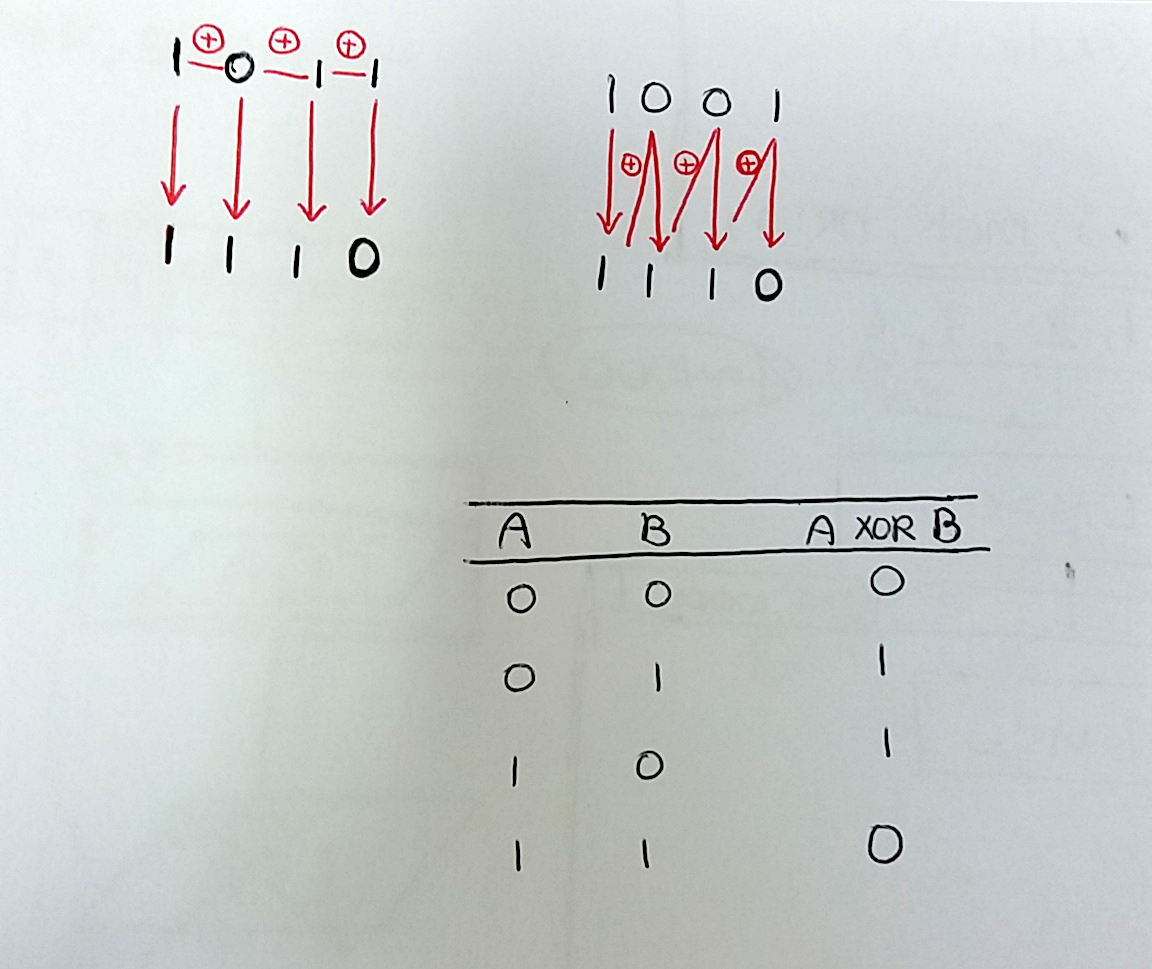 1 ⊕ 0 ⊕ 1 ⊕ 1
1 1 1 0
1 0 0 1
⊕ ⊕ ⊕
1 1 1 0
A B A XOR B
0 0 0
0 1 1
1 0 1
1 1 0